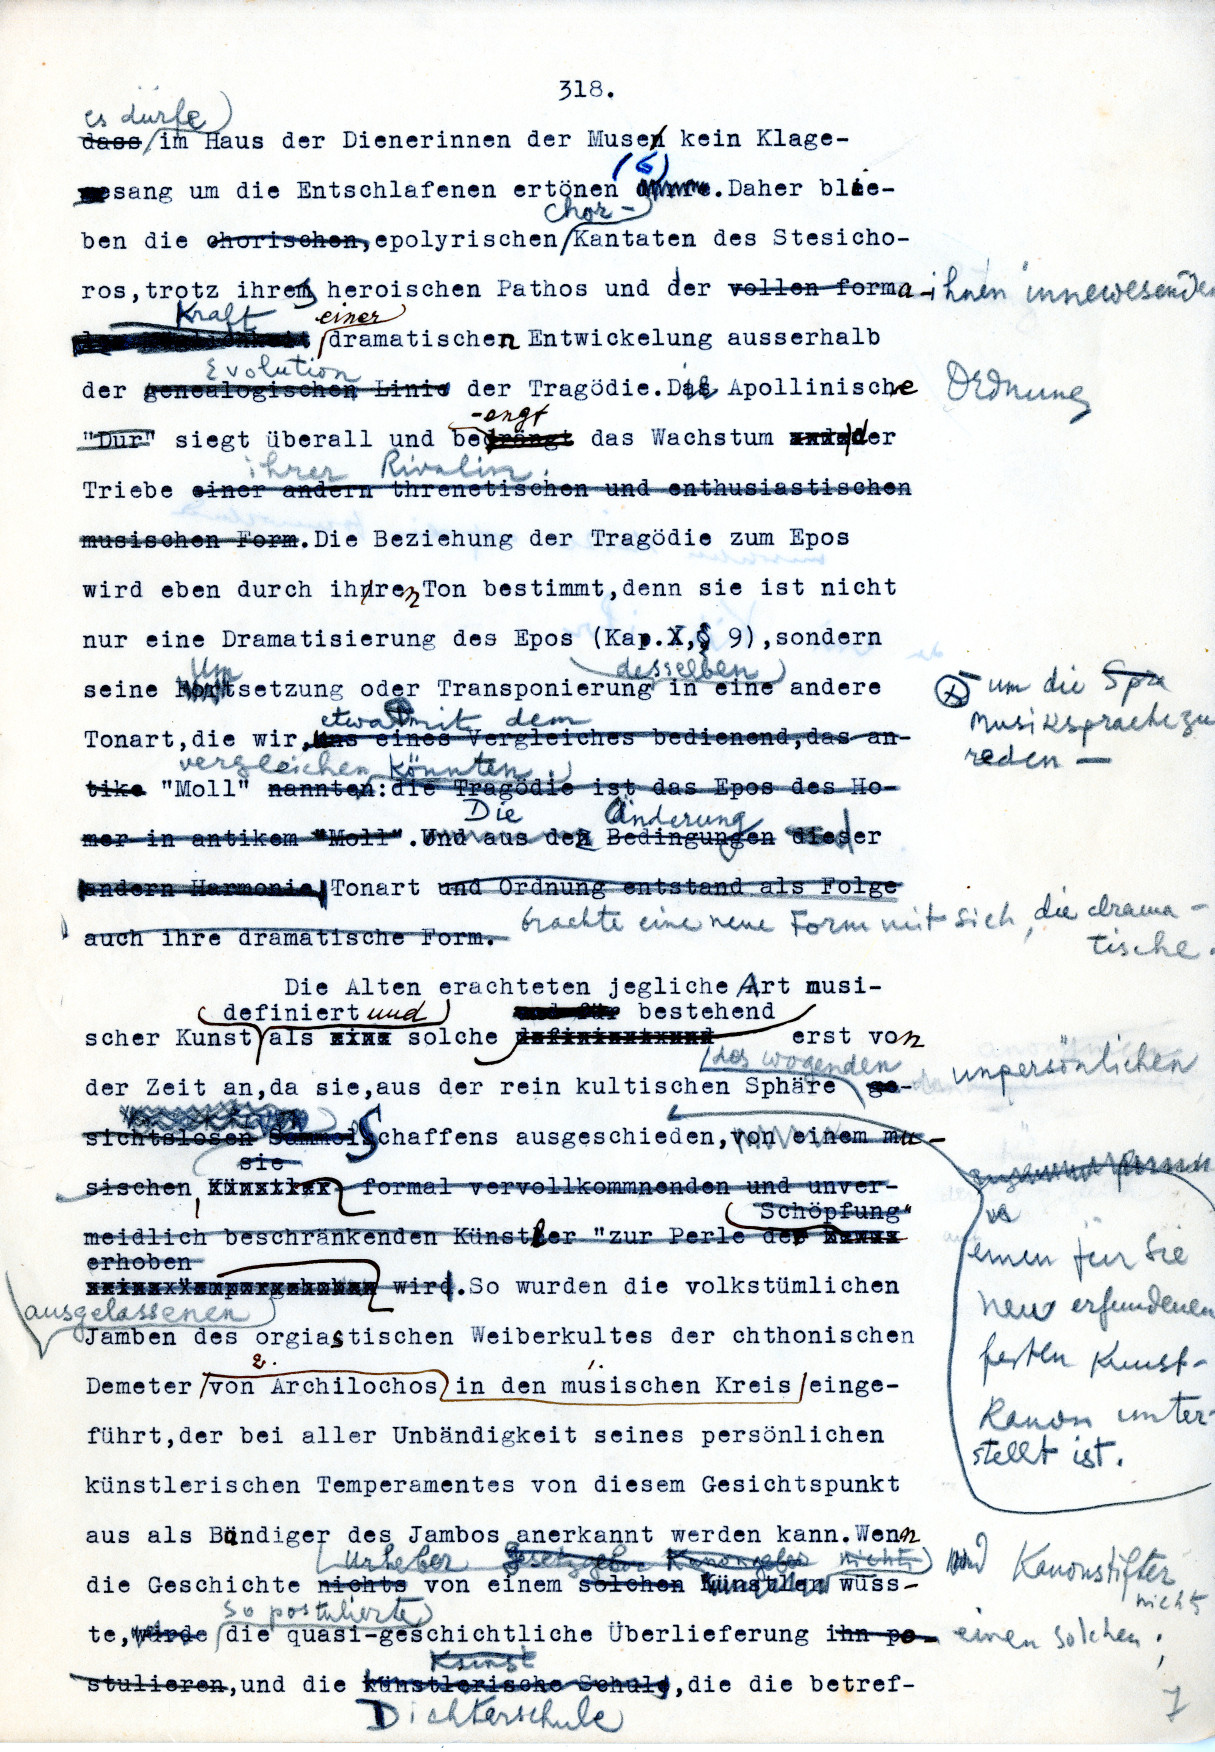 318.
es dürfe
dass im Haus der Dienerinnen der Musen kein Klage-
gesang um die Entschlafenen ertönen (6). Daher blie-
chor-
ben die chorischen, epolyrischen Kantaten des Stesicho-
ros, trotz ihrem heroischen Pathos und der vollen forma- ihnen innewesenden
Kraft einer
dramatischen Entwickelung ausserhalb
Evolution
der genealogischen Linie der Tragödie. Die Apollinische Ordnung
-engt
"Dur" siegt überall und bedrängt das Wachstum der
ihrer Rivalin.
Triebe einer andern threnetischen und enthusiastischen
musischen Form. Die Beziehung der Tragödie zum Epos
wird eben durch ihren Ton bestimmt, denn sie ist nicht
nur eine Dramatisierung des Epos (Kap. X, § 9), sondern
Um desselben
seine Fortsetzung oder Transponierung in eine andere
– um die Spra
Musiksprache zu
reden –
etwa mit dem
Tonart, die wir, uns eines Vergleiches bedienend, das an-
vergleichen könnten.
tike "Moll" nannten: die Tragödie ist das Epos des Ho-
Die Änderung
mer in antikem "Moll". Und aus den Bedingungen dieser
andern Harmonie, Tonart und Ordnung entstand als Folge
brachte eine neue Form mit sich, die drama-
tische.
auch ihre dramatische Form.
Die Alten erachteten jegliche Art musi-
definiert und und für bestehend
scher Kunst als solche erst von
des wogenden unpersönlichen
der Zeit an, da sie, aus der rein kultischen Sphäre ge-
sichtslosen Schaffens ausgeschieden, von einem mu-
sie
sischen, formal vervollkommnenden und unver-
Schöpfung"
meidlich beschränkenden Künstler "zur Perle der
erhoben
wird. So wurden die volkstümlichen
einen für sie
neu erfundenen
festen Kunst-
Kanon unter-
stellt ist.
ausgelassenen
Jamben des orgiastischen Weiberkultes der chthonischen
2. 1.
Demeter von Archilochos in den musischen Kreis einge-
führt, der bei aller Unbändigkeit seines persönlichen
künstlerischen Temperamentes von diesem Gesichtspunkt
aus als Bändiger des Jambos anerkannt werden kann. Wenn
Urheber Gesetzgeber Kanongeber nichts und Kanonstifter
nichts
die Geschichte nichts von einem solchen Künstler wuss-
so postulierte
te, würde die quasi-geschichtliche Überlieferung ihn po- einen solchen,
Kunst
stulieren, und die künstlerische Schule, die die betref-
Dichterschule
7